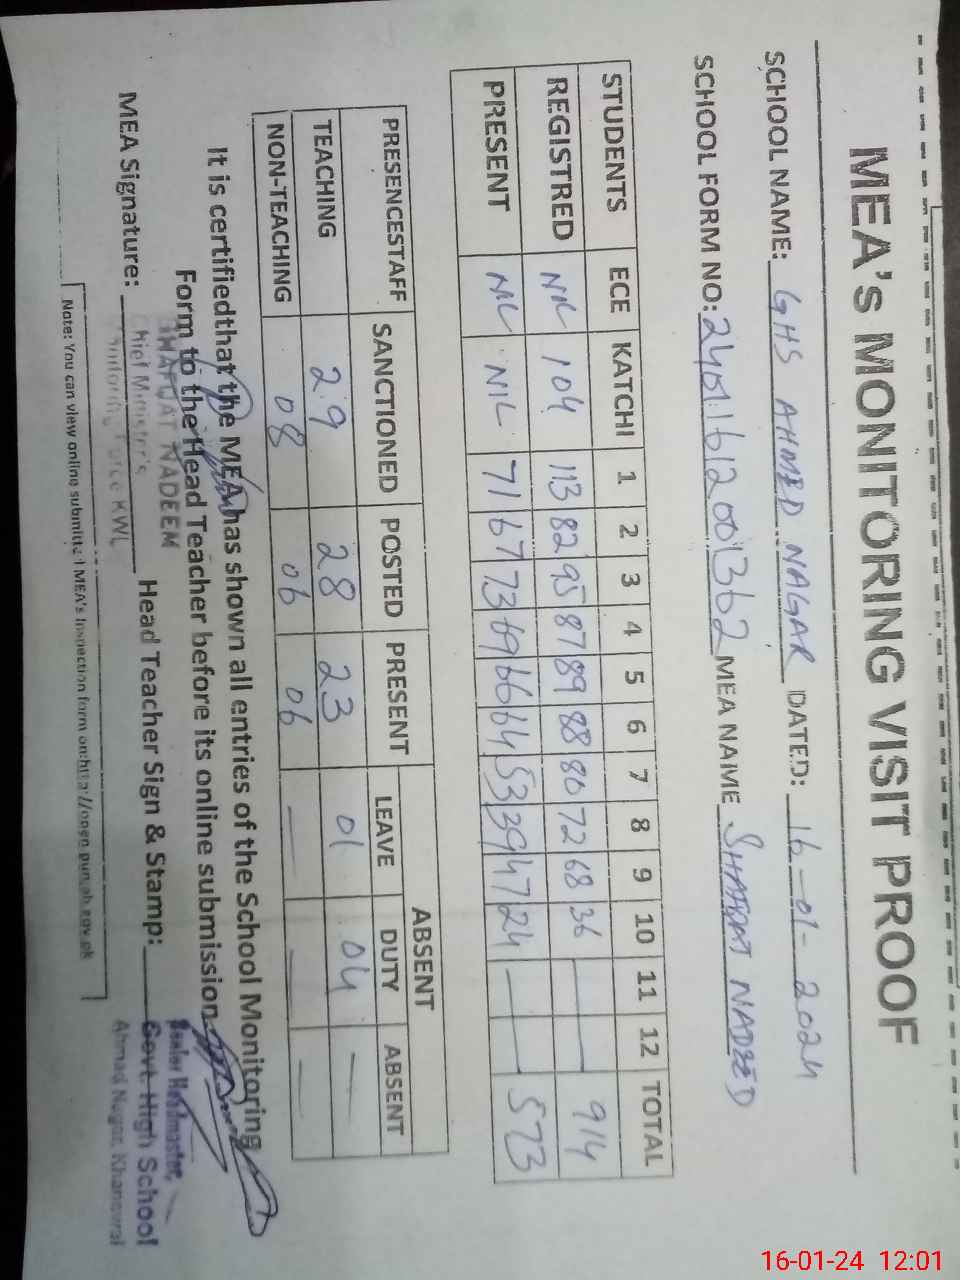 MEA's MONITORING VISIT PROOF
SCHOOL NAME: GHS AHMED NAGAR DATED: 16-01-2024
SCHOOL FORM NO: MEA NAME SHAFQAT NADEED
STUDENTS ECE KATCHI 1 2 3 4 5 6 7 8 9 10 11 12 TOTAL
REGISTRED NIL 104 113 82 95 87 89 88 80 72 68 36 — — 914
PRESENT NIL NIL 71 67 73 69 66 64 53 39 47 24 — — 573
PRESENCESTAFF SANCTIONED POSTED PRESENT ABSENT
LEAVE DUTY ABSENT
TEACHING 29 28 23 01 04 —
NON-TEACHING 08 06 06 — — —
It is certifiedthat the MEA has shown all entries of the School Monitoring
Form to the Head Teacher before its online submission
SHAFQAT NADEEM
MEA Signature: Head Teacher Sign & Stamp:
Chief Minister's
Monitoring Force KWL
Senior Headmaster,
Govt. High School
Ahmad Nagar, Khanewal
Note: You can view online submitted MEA's Inspection form on:http://open.punjab.gov.pk
16-01-24 12:01